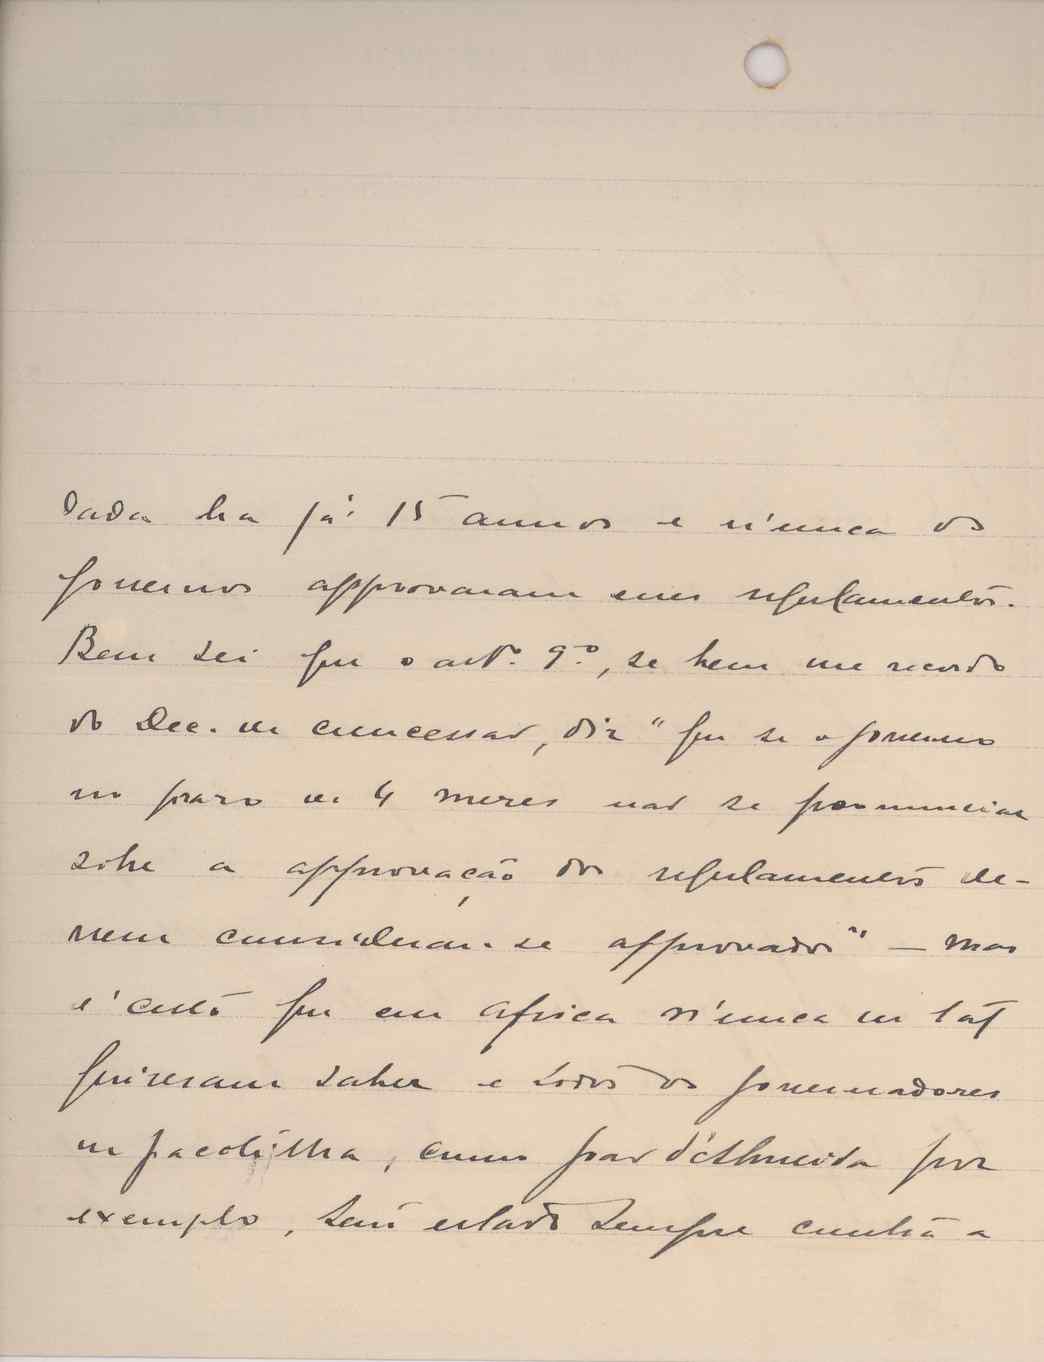 dada ha já 15 annos e nunca os
governos approvaram esses regulamentos.
Bem sei que o artº. 9º, se bem me recordo
do Dec. de concessão, diz "que se o governo
no prazo de 4 mezes não se pronunciar
sobre a approvação dos regulamentos de-
vem considerar-se approvados" — mas
é certo que em Africa nunca de tal
quizeram saber e todos os governadores
de pacotilha, como João d'Almeida por
exemplo, tem estado sempre contra a